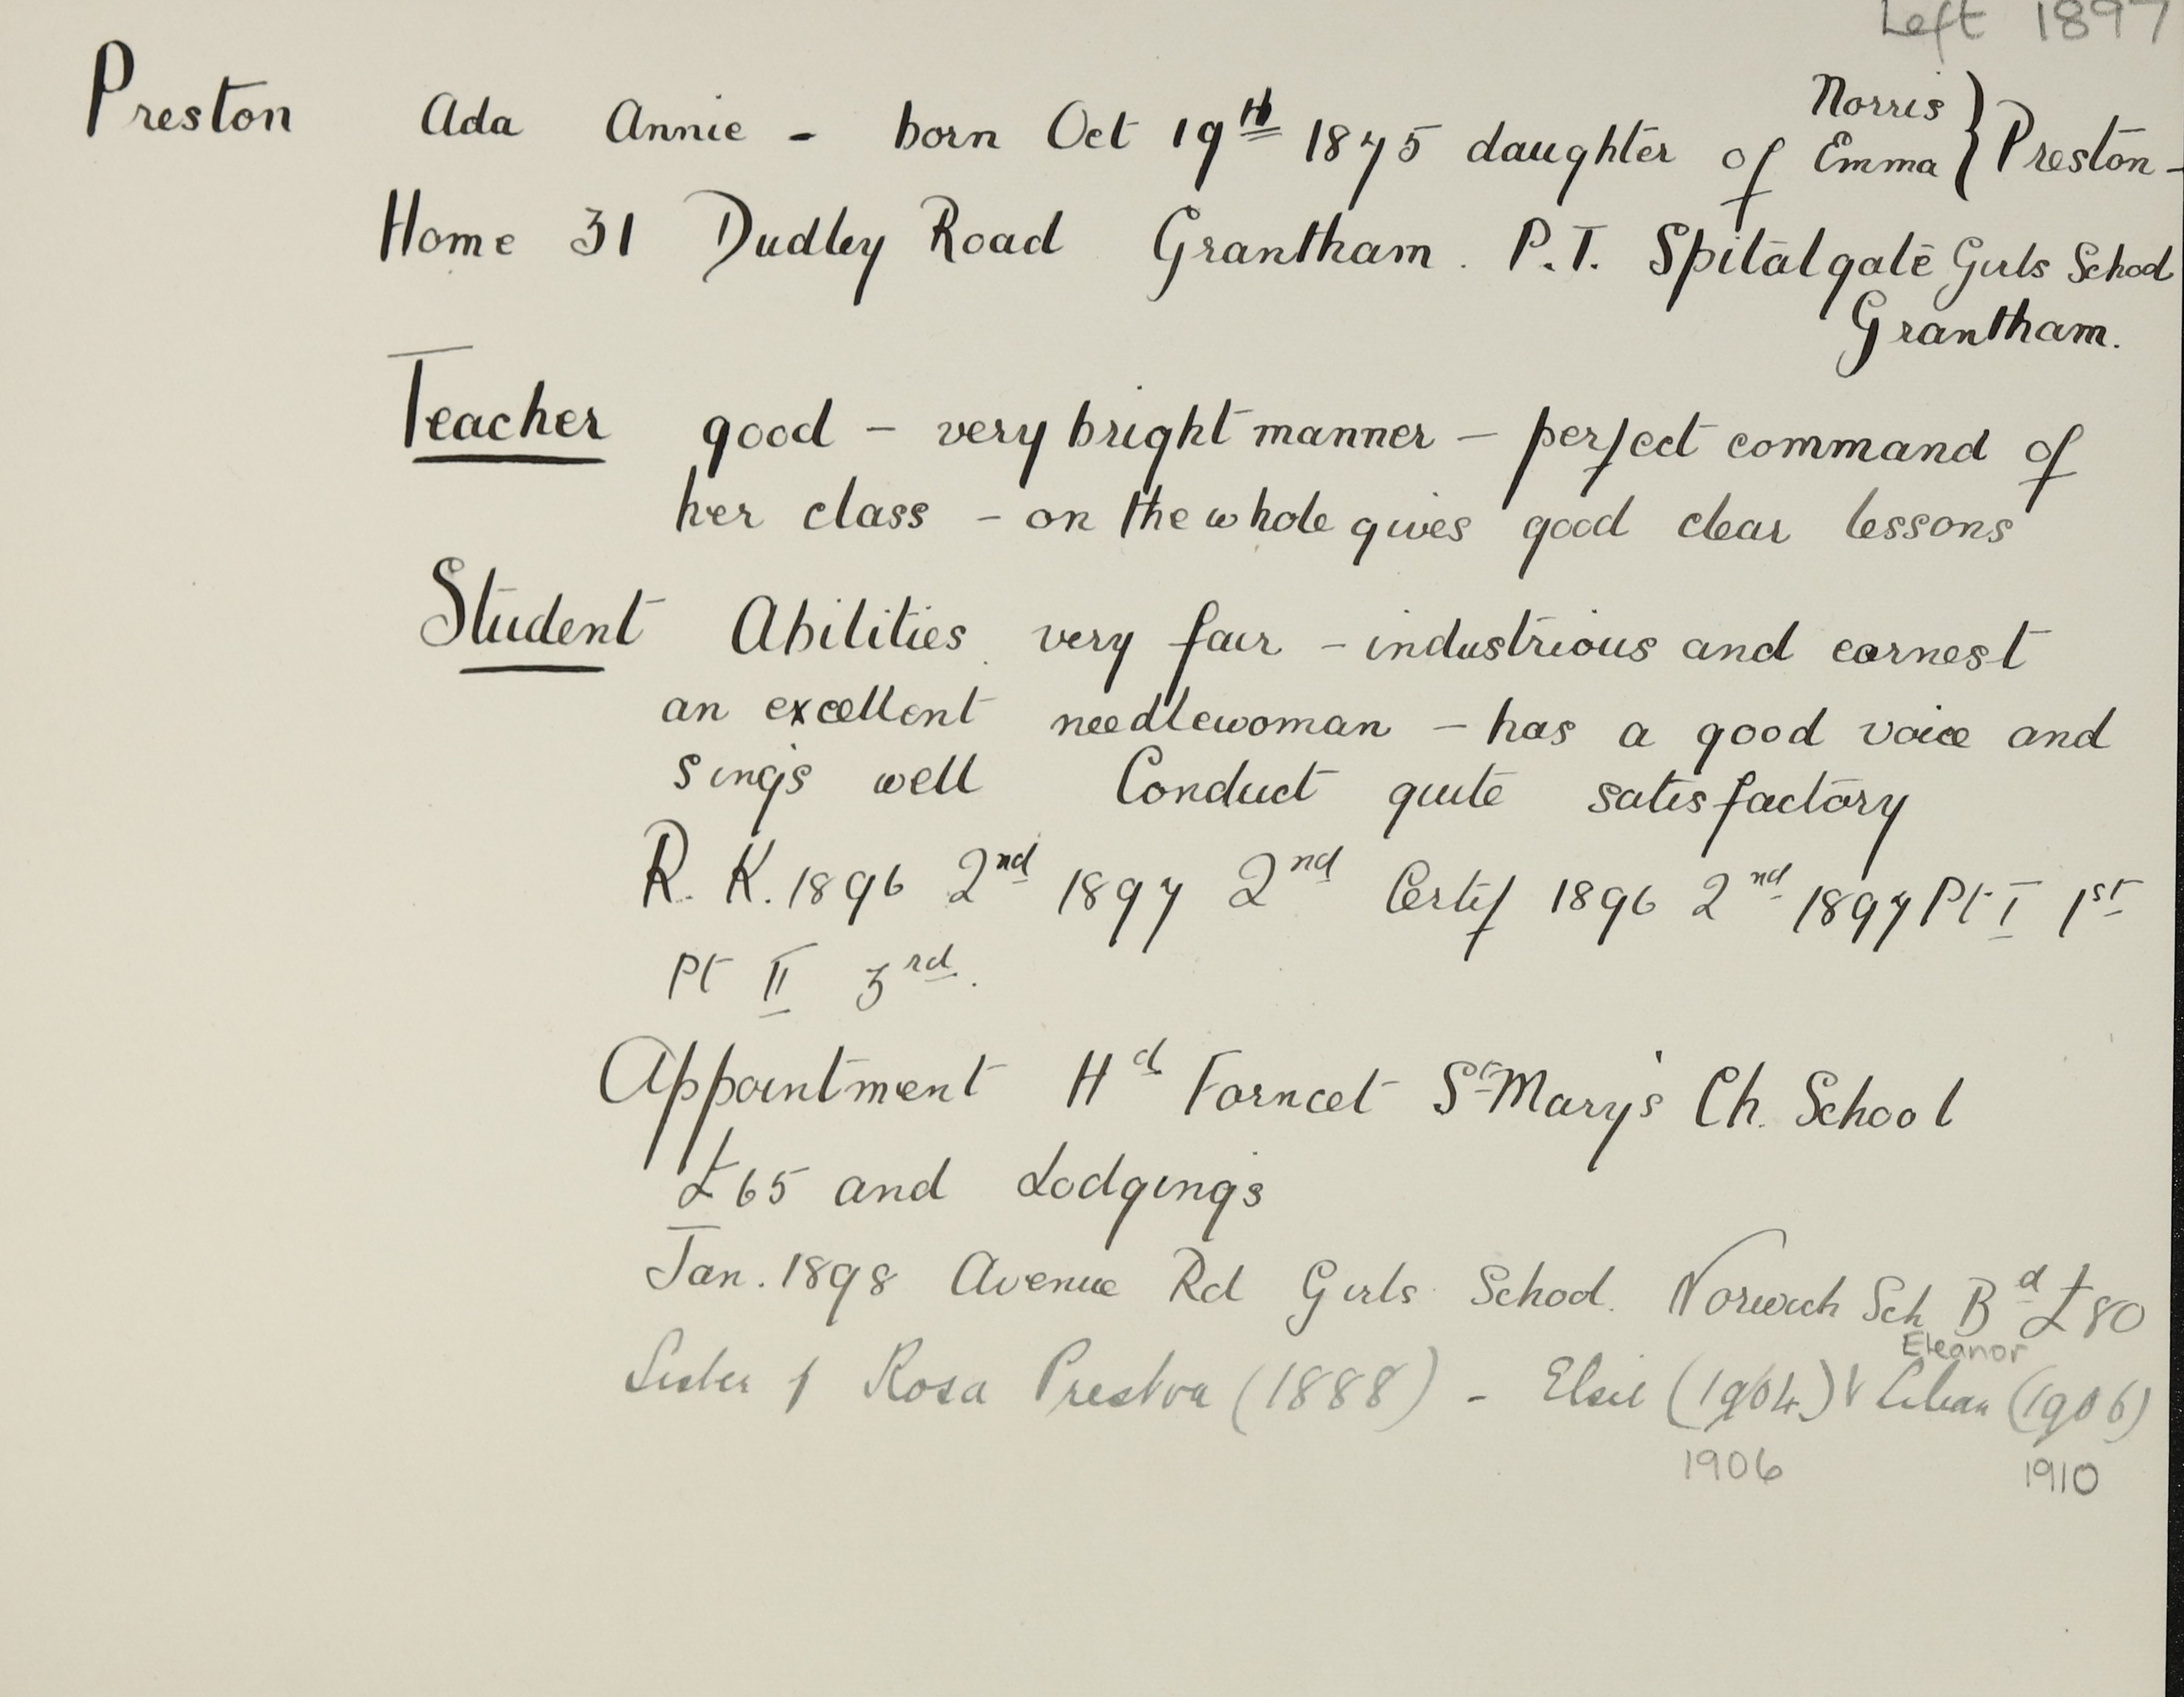 Left 1897
Preston Ada Annie - born Oct 19th 1875 daughter of Norris Emma } Preston -
Home 31 Dudley Road Grantham. P.T. Spitalgate Girls School
Grantham.
Teacher good - very bright manner - perfect command of
her class - on the whole gives good clear lessons
Student Abilities very fair - industrious and earnest
an excellent needlewoman - has a good voice and
sings well Conduct quite satisfactory
R. K. 1896 2nd 1897 2nd Certif 1896 2nd 1897 Pt I 1st
Pt II 3rd.
Appointment Hd Forncet St Mary's Ch. School
£65 and Lodgings
Jan. 1898 Avenue Rd Girls School. Norwich Sch Bd £80
Eleanor
Sister of Rosa Preston (1888) - Elsie (1904) & Lilian (1906)
1906 1910